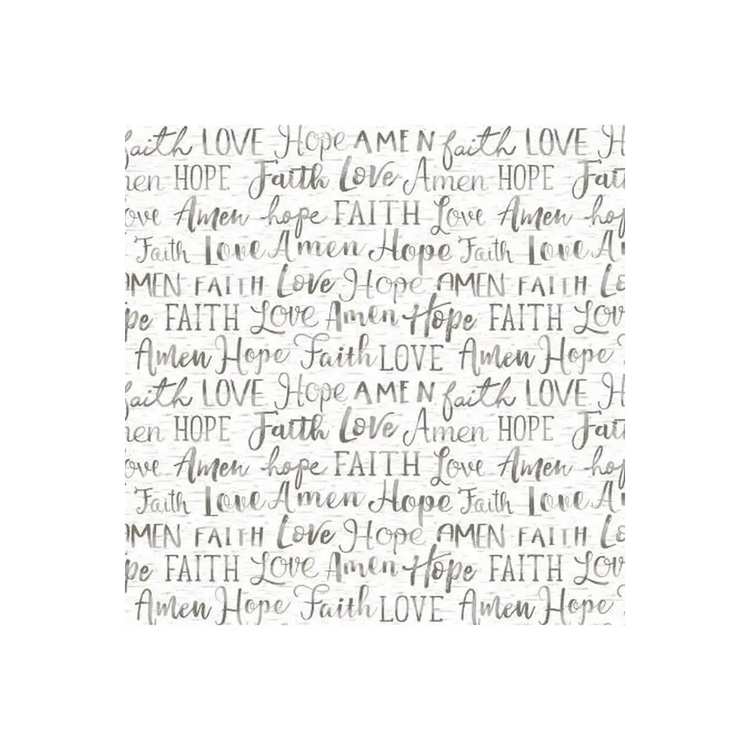 faith LOVE Hope AMEN faith LOVE H
men HOPE Faith Love Amen HOPE Fait
ove Amen hope FAITH Love Amen hop
Faith Love Amen Hope Faith Love A
AMEN FAITH Love Hope AMEN FAITH Lo
pe FAITH Love Amen Hope FAITH Love
Amen Hope Faith LOVE Amen Hope
faith LOVE Hope AMEN faith LOVE H
men HOPE Faith Love Amen HOPE Fait
ove Amen hope FAITH Love Amen hop
Faith Love Amen Hope Faith Love A
AMEN FAITH Love Hope AMEN FAITH Lo
pe FAITH Love Amen Hope FAITH Love
Amen Hope Faith LOVE Amen Hope